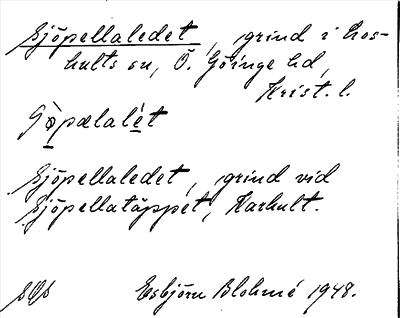 Sjöpellaledet, grind i Hos-
hults sn, Ö. Göinge hd,
Krist. l.
Sjöpellaledet, grind vid
Sjöpellatäppet, Karhult.
Esbjörn Blohmé 1948.